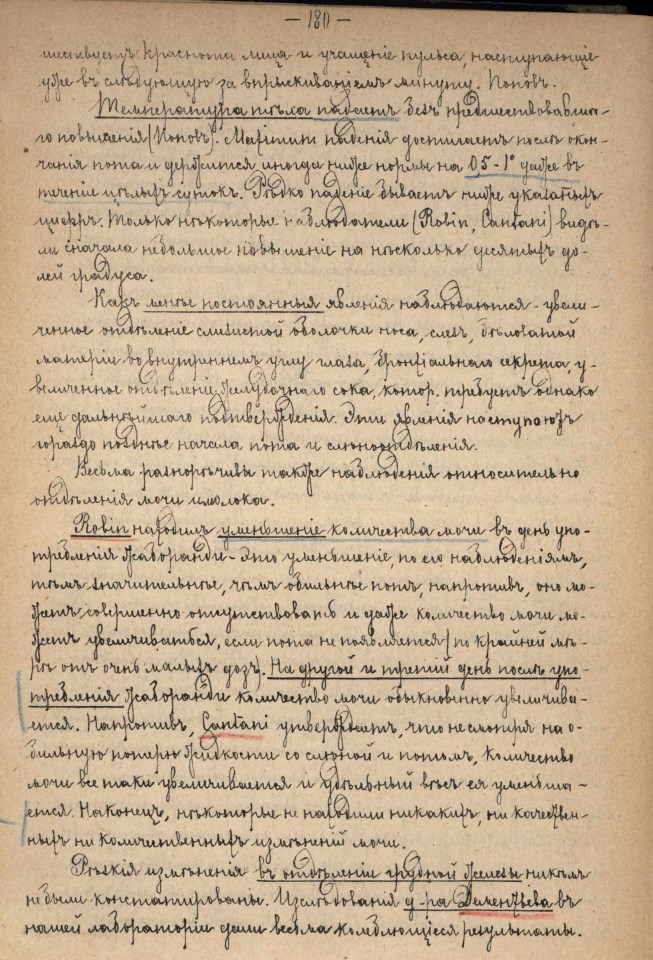 — 180 —
шествуетъ краснота лица и учащеніе пульса, наступающіе
уже въ слѣдующую за впрыскиваніемъ минуту. Поповъ.
Температура тѣла падаетъ безъ предшествовавша-
го повышенія (Поповъ). Maximum паденія достигаетъ послѣ окон-
чанія пота и держится иногда ниже нормы на 0,5 - 1° даже въ
теченіи цѣлыхъ сутокъ. Рѣдко паденіе бываетъ ниже указанныхъ
цифръ. Только нѣкоторые наблюдатели (Robin, Cantani) видѣ-
ли сначала небольшое повышеніе на нѣсколько десятыхъ до-
лей градуса.
Какъ менѣе постоянныя явленія наблюдаются - увели-
ченное отдѣленіе слизистой оболочки носа, слезъ, бѣловатой
матеріи во внутреннемъ углу глаза, бронхіальнаго секрета, у-
величенное отдѣленіе желудочнаго сока, котор. требуетъ однако
еще дальнѣйшаго подтвержденія. Эти явленія наступаютъ
гораздо позднѣе начала пота и слюноотдѣленія.
Весьма разнорѣчивы также наблюденія относительно
отдѣленія мочи и молока.
Robin находилъ уменьшеніе количества мочи въ день упо-
требленія Жаборанди - Это уменьшеніе, по его наблюденіямъ,
тѣмъ значительнѣе, чѣмъ обильнѣе потъ, напротивъ, оно мо-
жетъ совершенно отсутствовать и даже количество мочи мо-
жетъ увеличиваться, если пота не появляется (по крайней мѣ-
рѣ отъ очень малыхъ дозъ). На другой и третій день послѣ упо-
требленія Жаборанди количество мочи обыкновенно увеличива-
ется. Напротивъ, Cantani утверждаетъ, что не смотря на о-
бильную потерю жидкости со слюной и потомъ, количество
мочи все таки увеличивается и удѣльный вѣсъ ея уменьша-
ется. Наконецъ, нѣкоторые не находили никакихъ, ни качествен-
ныхъ ни количественныхъ измѣненій мочи.
Рѣзкія измѣненія въ отдѣленіи грудной железы никѣмъ
не были констатированы. Изслѣдованія д-ра Дементьева въ
нашей лабораторіи дали весьма колеблющіеся результаты.